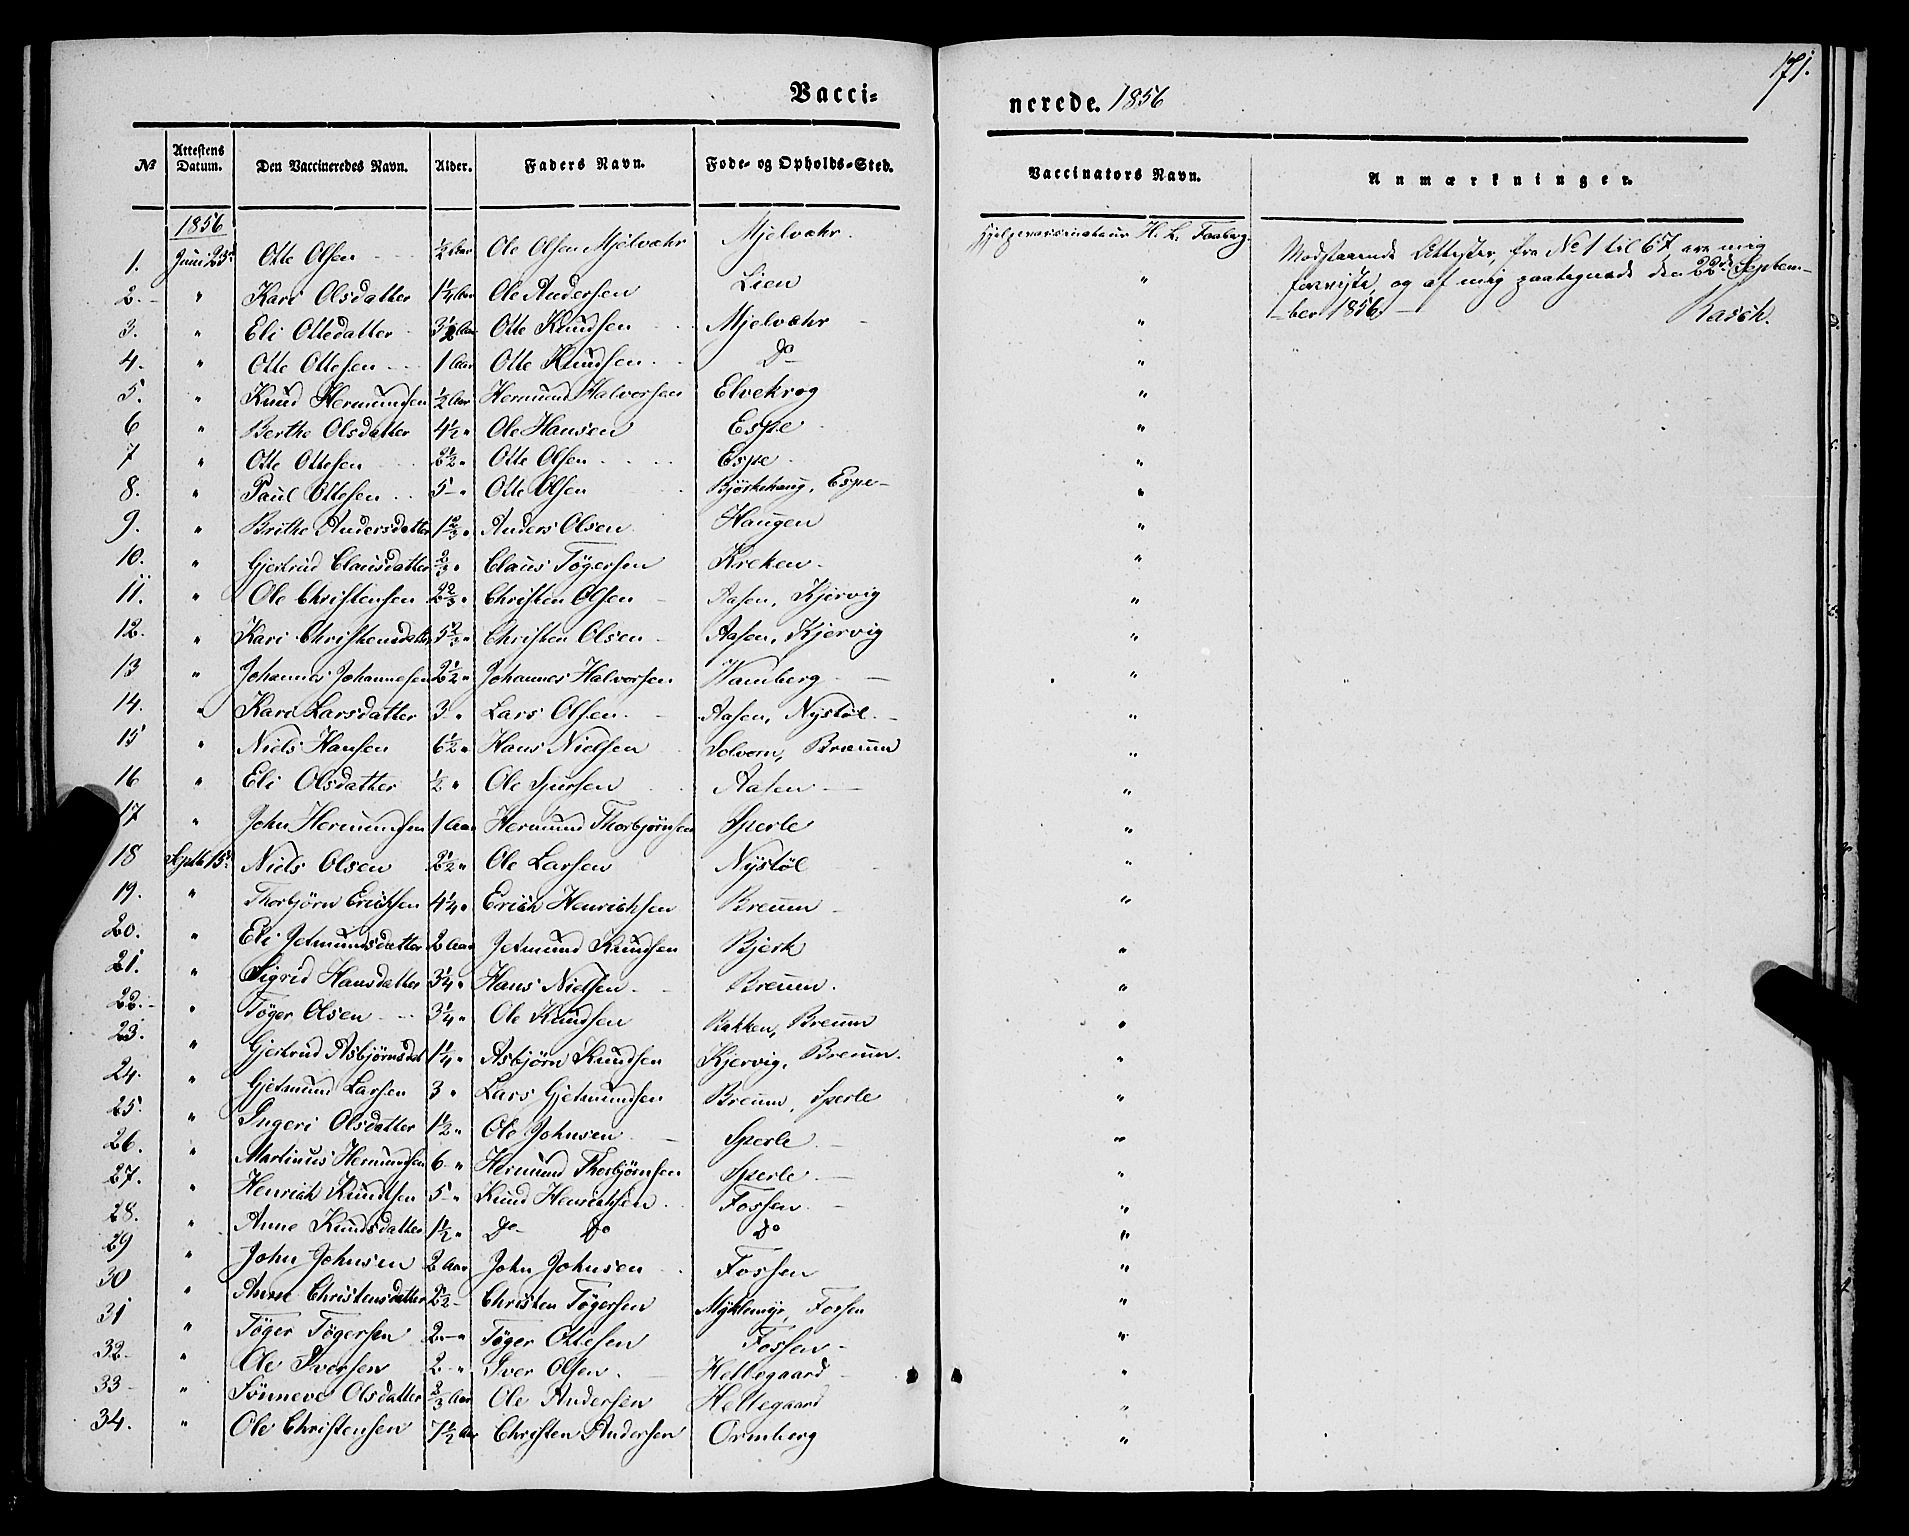 171.
Vacci-
nerede. 1856
№ Attestens Datum. Den Vaccineredes Navn. Alder. Faders Navn. Føde- og Opholds-Sted. Vaccinators Navn. Anmærkninger.
1856
1. Juni 23d Otte Olsen ½ Aar Ole Olsen Mjelvæhr Mjelvæhr. Hjelpevaccinateur H. L. Faaberg.
2. " Kari Olsdatter 1¼ Aar Ole Andersen Lien "
3. " Eli Ottesdatter 3½ Aar Otte Knudsen Mjelvæhr "
4. " Otte Ottesen 1 Aar Otte Knudsen Do "
5. " Knud Hermundsen ½ Aar Hermund Halvorsen Elvekrog "
6 " Berthe Olsdatter 4½ " Ole Hansen Espe "
7 " Otte Ottesen 2½ " Otte Olsen Espe "
8. " Paul Ottesen 5 " Otte Olsen Bjørkehaug, Espe "
9. " Brithe Andersdatter 1⅔ " Anders Olsen Haugen "
10. " Gjertrud Clausdatter ⅔ " Claus Tøgersen Kreken "
11. " Ole Christensen 2⅔ " Christen Olsen Aasen, Kjervig "
12. " Kari Christensdatter 5⅔ " Christen Olsen Aasen, Kjervig "
13 " Johannes Johannesen 2½ " Johannes Halvorsen Wamberg "
14. " Kari Larsdatter 3 " Lars Olsen Aasen, Nystøl "
15 " Niels Hansen 6½ " Hans Nielsen Solvorn, Breuum "
16 " Eli Olsdatter ½ " Ole Sjursen Aasen "
17 " John Hermundsen 1 Aar Hermund Thorbjørnsen Sperle "
18 Septb 15d Niels Olsen 2½ " Ole Larsen Nystøl "
19. " Thorbjørn Erichsen 4¼ " Erich Henrichsen Breum "
20. " Eli Jetmundsdatter 2 Aar Jetmund Knudsen Bjerk "
21. " Sigrid Hansdatter 3¼ " Hans Nielsen Breum. "
22. " Tøger Olsen 3¼ " Ole Knudsen Bakken, Breum "
23. " Gjertrud Asbjørnsdat 1¼ " Asbjørn Knudsen Kjervig, Breum. "
24. " Gjetmund Larsen 3 " Lars Gjetmundsen Breum, Sperle "
25. " Ingeri Olsdatter 1½ " Ole Johnsen Sperle "
26. " Martinus Hermundsen 6 " Hermund Thorbjørnsen Sperle "
27. " Henrich Knudsen 5 " Knud Henrichsen Fossen "
28. " Anne Knudsdatter 1½ " Do Do Do "
29 " John Johnsen 2 Aar John Johnsen Fossen "
30 " Anne Christensdatter 2½ Christen Tøgersen Myklemyr, Fossen "
31 " Tøger Tøgersen 2 " Tøger Ottesen Fossen "
32 " Ole Iversen 2 " Iver Olsen Hellegaard "
33 " Sønneve Olsdatter ⅔ Aar Ole Andersen Hellegaard "
34. " Ole Christensen 7½ Aar Christen Andersen Ormberg "
Modstaaende Attester, fra No 1 til 67 ere mig
foreviste, og af mig paategnede den 22de Septem-
ber 1856.
Rasch.